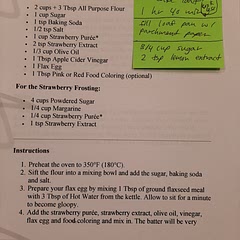 2 cups + 3 Tbsp All Purpose Flour
1 cup Sugar
1 tsp Baking Soda
1/2 tsp Salt
1 cup Strawberry Purée*
2 tsp Strawberry Extract
1/3 cup Olive Oil
1 Tbsp Apple Cider Vinegar
1 Flax Egg
1 Tbsp Pink or Red Food Coloring (optional)
1 hr
loaf pan w/
parchment paper
3/4 cup sugar
2 tsp lemon extract
For the Strawberry Frosting:
4 cups Powdered Sugar
1/4 cup Margarine
1/4 cup Strawberry Purée*
1 tsp Strawberry Extract
Instructions
1. Preheat the oven to 350°F (180°C).
2. Sift the flour into a mixing bowl and add the sugar, baking soda
and salt.
3. Prepare your flax egg by mixing 1 Tbsp of ground flaxseed meal
with 3 Tbsp of Hot Water from the kettle. Allow to sit for a minute
to become gloopy.
4. Add the strawberry purée, strawberry extract, olive oil, vinegar,
flax egg and food coloring and mix in. The batter will be very